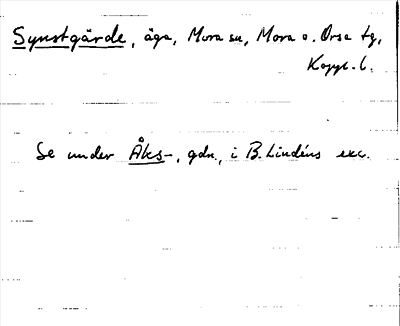 Synstgärde, äga, Mora sn, Mora o. Orsa tg,
Kopp. l.
Se under Åks-, gdn., i B. Lindéns exc.